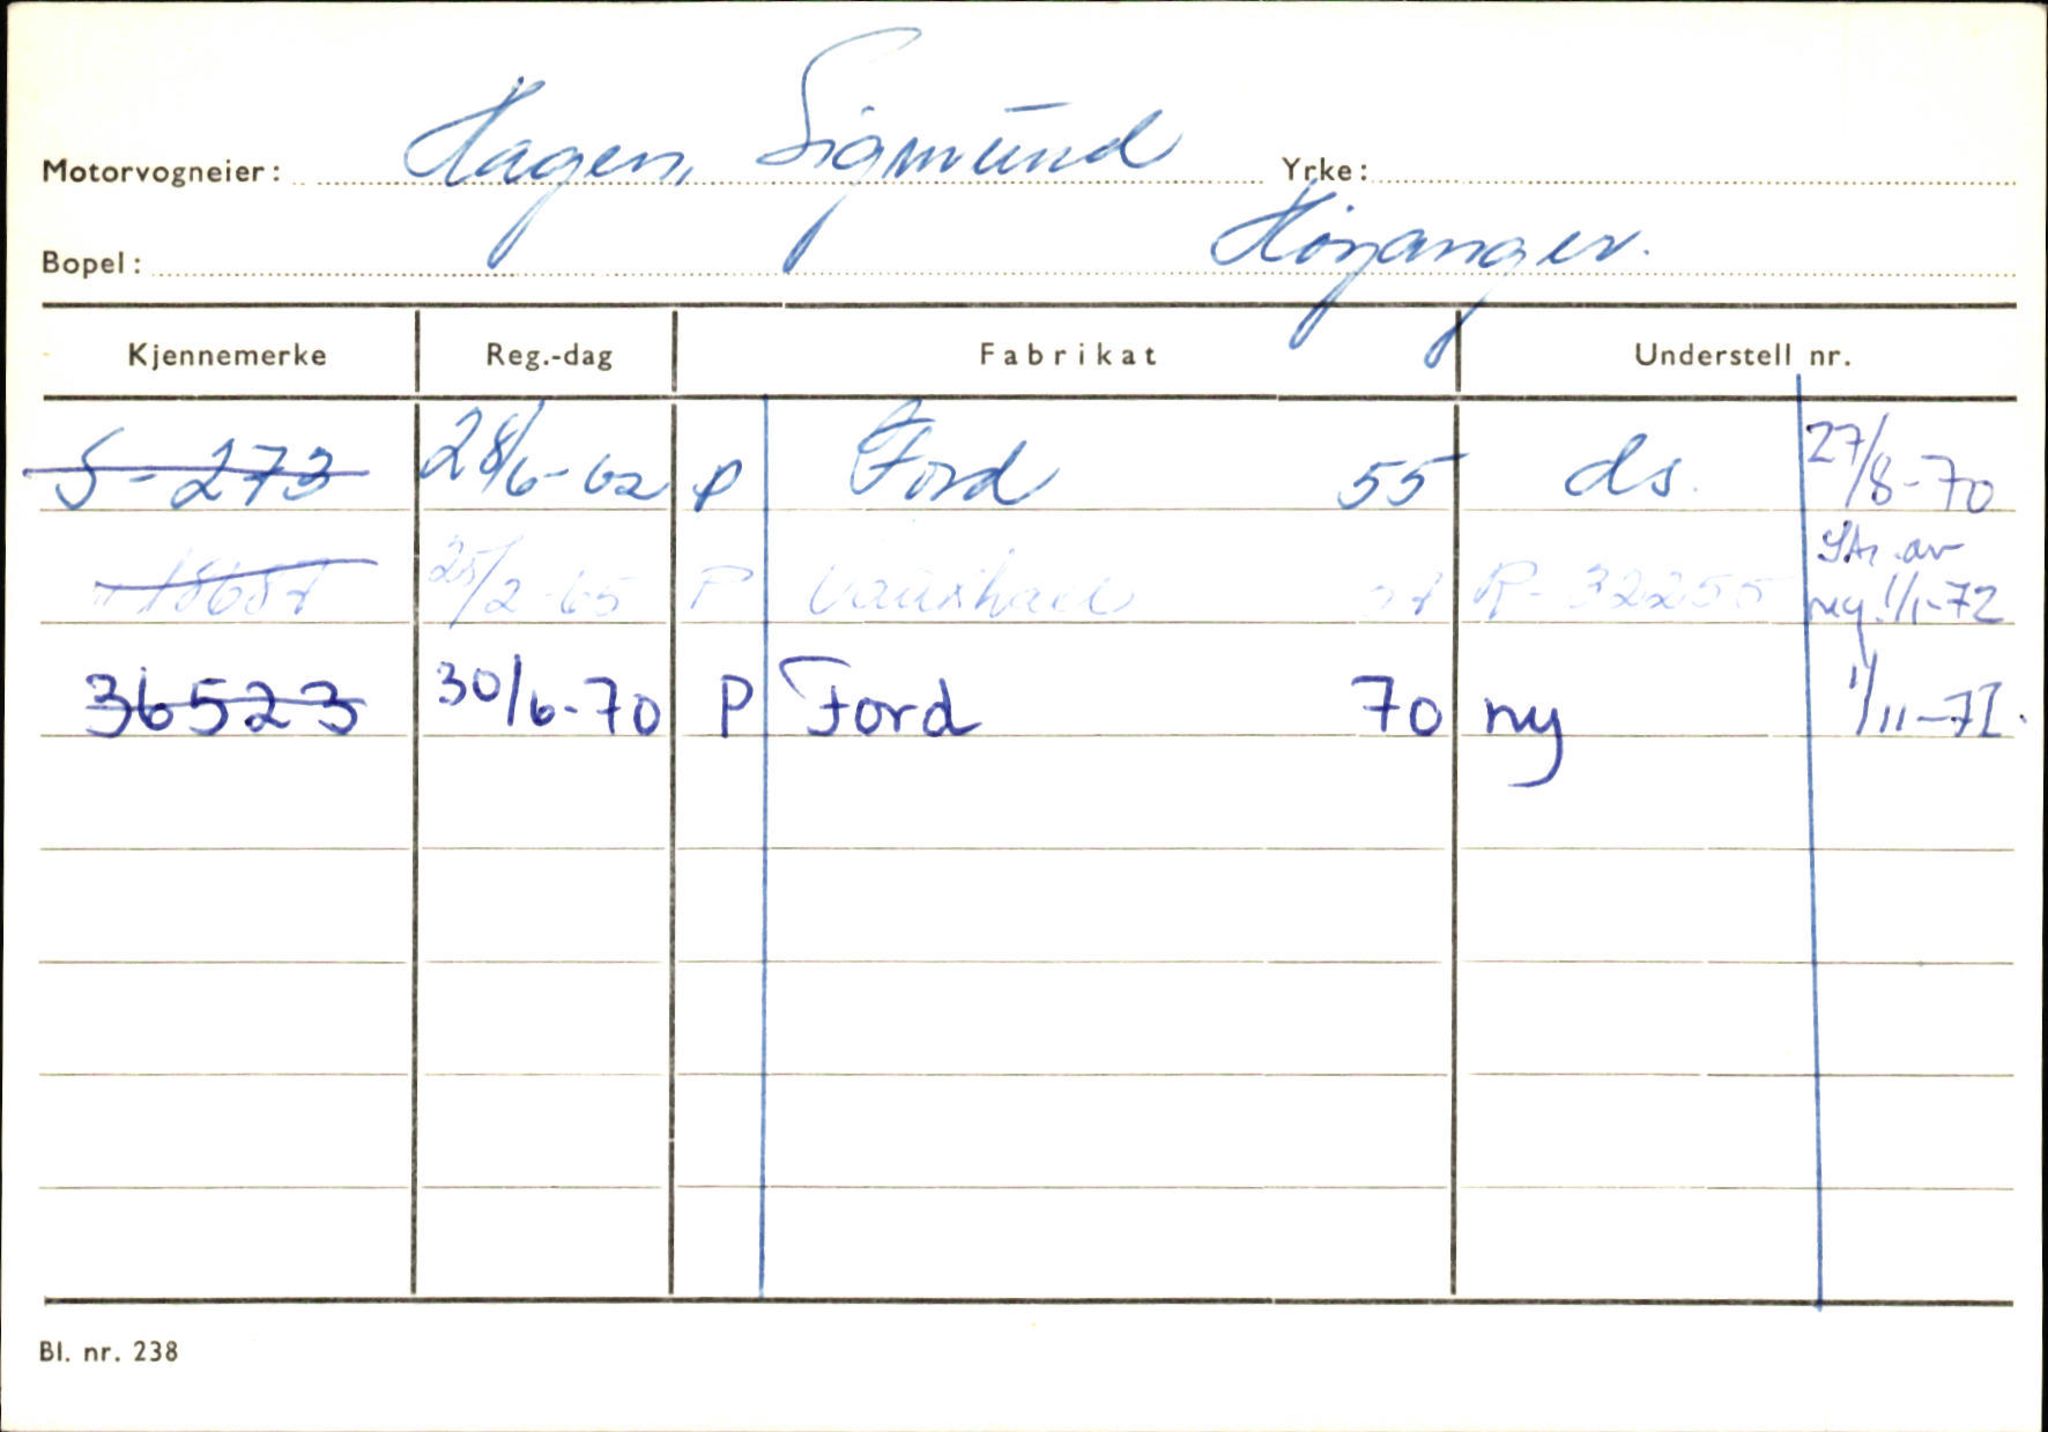 Motorvogneier: Hagen, Sigmund Yrke:
Bopel: Høyanger.
Kjennemerke Reg.-dag Fabrikat Understell nr.
S-273 28/6-62 P Ford 55 ds. 27/8-70
25/2-65 P Vauxhall R-32255 Str. av reg. 1/1-72
36523 30/6-70 P Ford 70 ny 1/11-71.
Bl. nr. 238